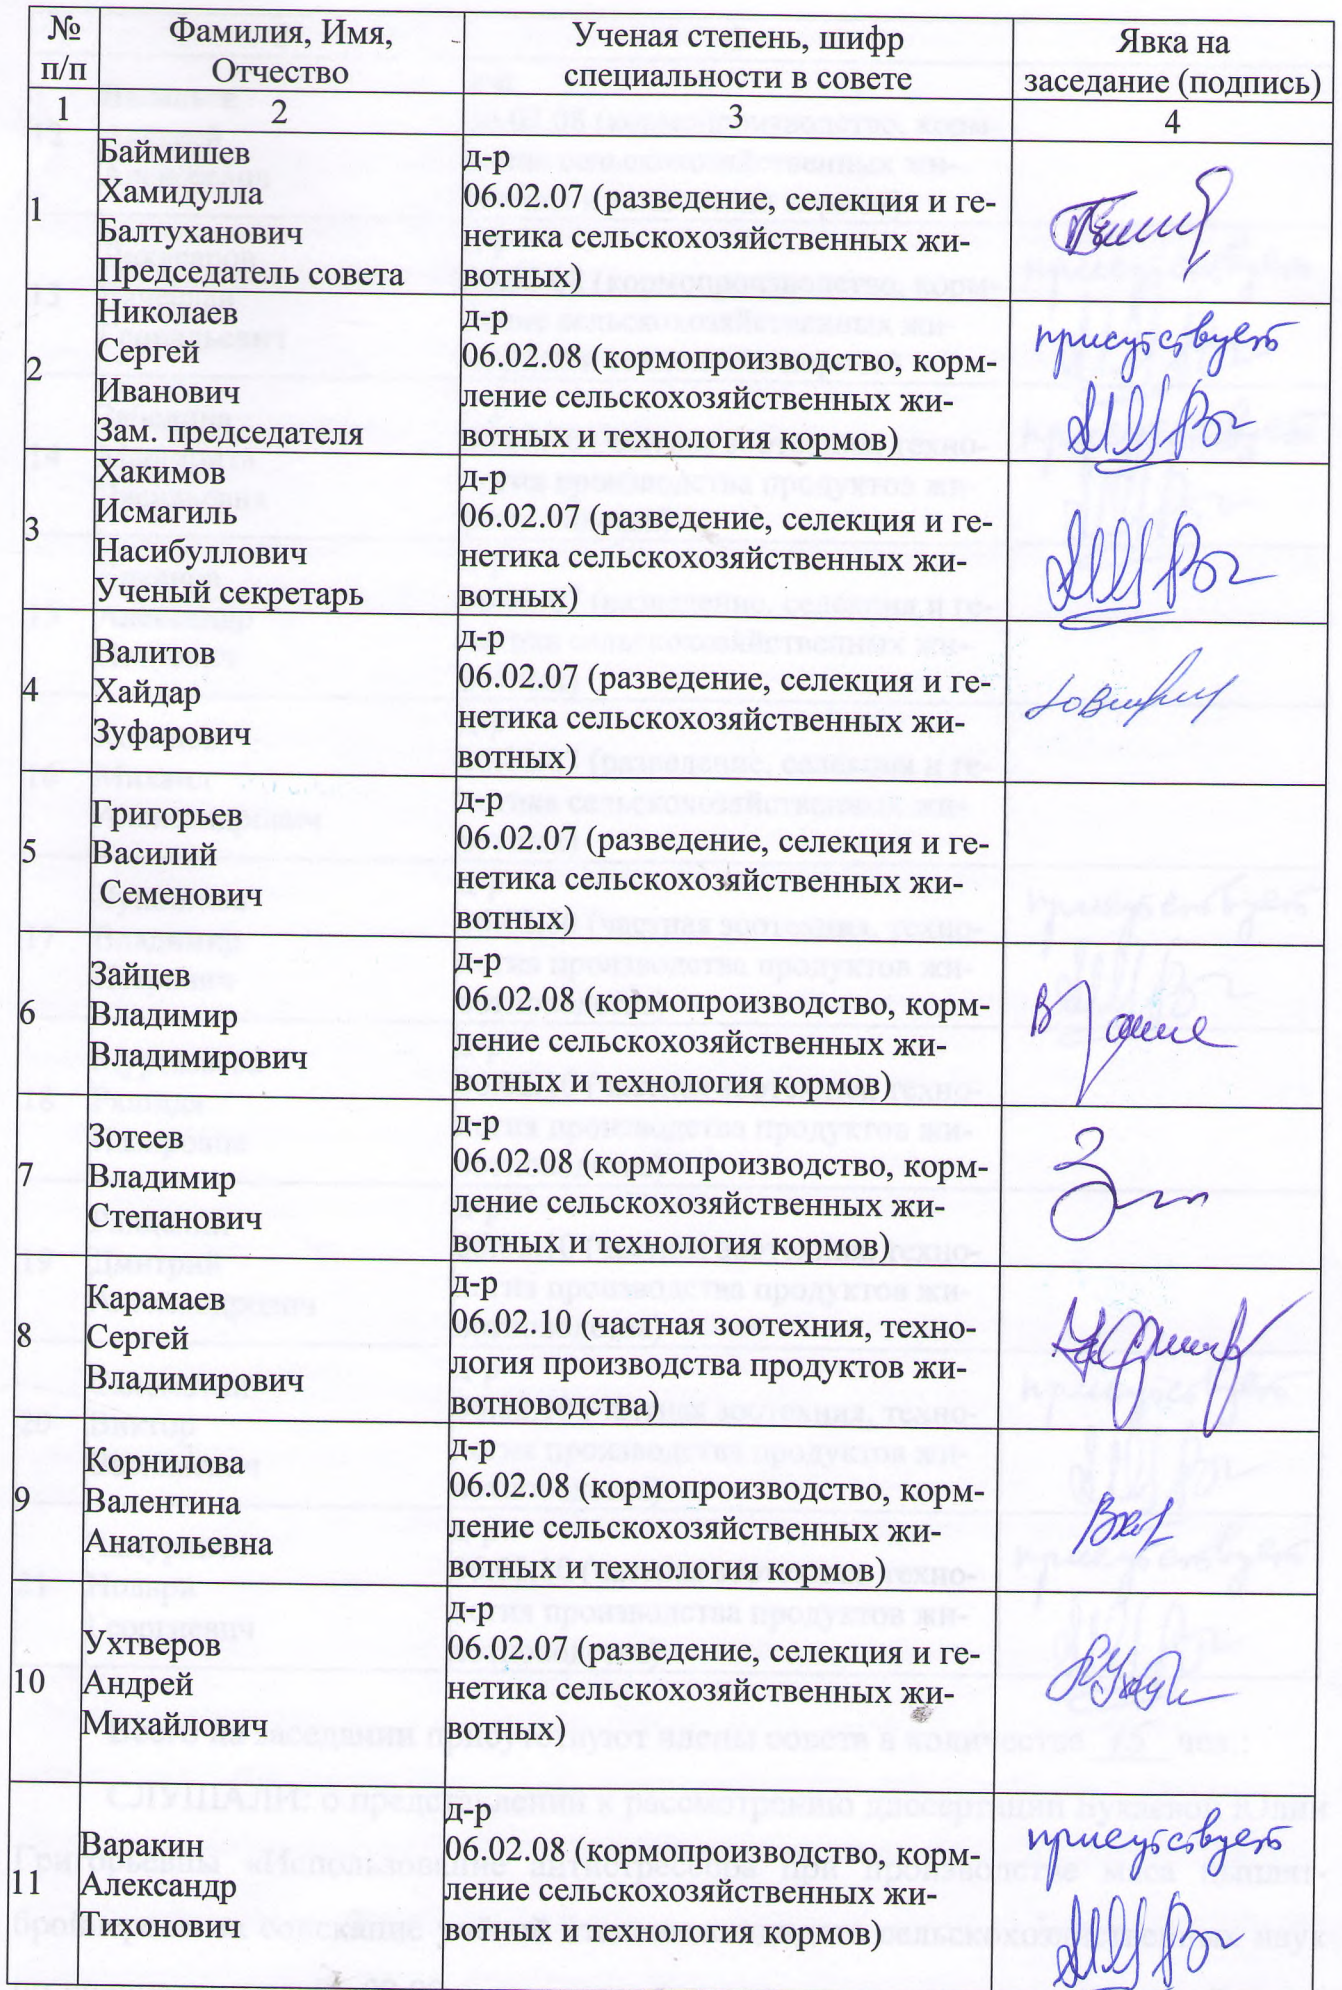 № п/п
Фамилия, Имя, Отчество
Ученая степень, шифр специальности в совете
Явка на заседание (подпись)
1 2 3 4
1
Баймишев
Хамидулла
Балтуханович
Председатель совета
д-р
06.02.07 (разведение, селекция и ге-
нетика сельскохозяйственных жи-
вотных)
2
Николаев
Сергей
Иванович
Зам. председателя
д-р
06.02.08 (кормопроизводство, корм-
ление сельскохозяйственных жи-
вотных и технология кормов)
присутствует
3
Хакимов
Исмагиль
Насибуллович
Ученый секретарь
д-р
06.02.07 (разведение, селекция и ге-
нетика сельскохозяйственных жи-
вотных)
4
Валитов
Хайдар
Зуфарович
д-р
06.02.07 (разведение, селекция и ге-
нетика сельскохозяйственных жи-
вотных)
5
Григорьев
Василий
Семенович
д-р
06.02.07 (разведение, селекция и ге-
нетика сельскохозяйственных жи-
вотных)
6
Зайцев
Владимир
Владимирович
д-р
06.02.08 (кормопроизводство, корм-
ление сельскохозяйственных жи-
вотных и технология кормов)
7
Зотеев
Владимир
Степанович
д-р
06.02.08 (кормопроизводство, корм-
ление сельскохозяйственных жи-
вотных и технология кормов)
8
Карамаев
Сергей
Владимирович
д-р
06.02.10 (частная зоотехния, техно-
логия производства продуктов жи-
вотноводства)
9
Корнилова
Валентина
Анатольевна
д-р
06.02.08 (кормопроизводство, корм-
ление сельскохозяйственных жи-
вотных и технология кормов)
10
Ухтверов
Андрей
Михайлович
д-р
06.02.07 (разведение, селекция и ге-
нетика сельскохозяйственных жи-
вотных)
11
Варакин
Александр
Тихонович
д-р
06.02.08 (кормопроизводство, корм-
ление сельскохозяйственных жи-
вотных и технология кормов)
присутствует